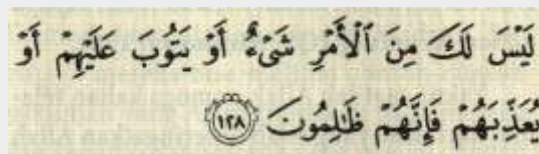 لَيْسَ لَكَ مِنَ ٱلْأَمْرِ شَىْءٌ أَوْ يَتُوبَ عَلَيْهِمْ أَوْ
يُعَذِّبَهُمْ فَإِنَّهُمْ ظَٰلِمُونَ ١٢٨